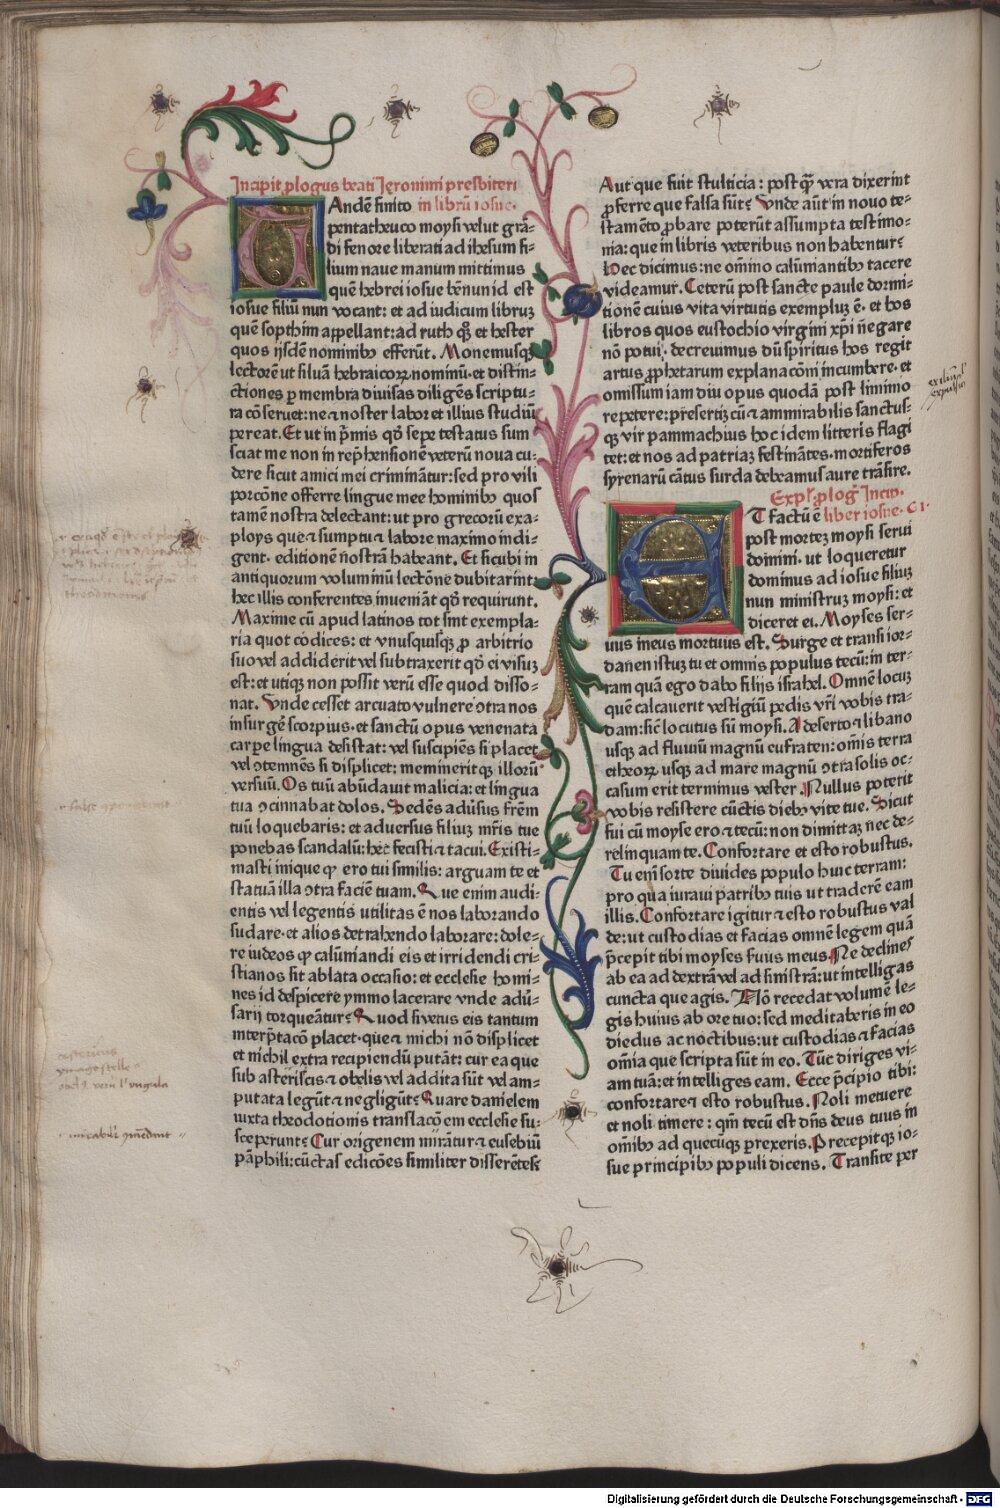 Incipit plogus beati Jeronimi presbiteri
Andẽ finito in librũ iosue.
pentatheuco moysi velut grã-
di fenore liberati ad ihesum fi-
lium naue manum mittimus
quẽ hebrei iosue bẽnun id est
iosue filiũ nun vocant: et ad iudicum libruꝫ
quẽ sopthim appellant: ad ruth qꝫ et hester
quos ijsdẽ nominibꝰ efferũt. Monemusqꝫ
lectorẽ ut siluã hebraicoꝝ nominũ et distin-
ctiones ꝑ membra diuisas diligẽs scriptu-
ra cõseruet: ne ⁊ noster labor et illius studiũ
pereat. Et ut in p̃mis qð sepe testatus sum
sciat me non in repħensionẽ veterũ noua cu-
dere sicut amici mei crimĩnãtur: sed pro vili
porcõne offerre lingue mee hominibꝰ quos
tamẽ nostra delectant: ut pro grecorũ exa-
ploys que ⁊ sumptu ⁊ labore maximo indi-
gent. editionẽ nostrã habeant. Et sicubi in
antiquorum voluminũ lectõne dubitarint:
hec illis conferentes inueniãt qð requirunt.
Maxime cũ apud latinos tot sint exempla-
ria quot codices: et vnusquisqꝫ ꝓ arbitrio
suo vel addiderit vel subtraxerit qð ei visuꝫ
est: et utiqꝫ non possit verũ esse quod disso-
nat. Vnde cesset arcuato vulnere ꝯtra nos
insurgẽ scorpius. et sanctũ opus venenata
carpe lingua desistat: vel suscipiẽs si placet
vel ꝯtemnẽs si displicet: memineritqꝫ illorũ
versuũ. Os tuũ abũdauit malicia: et lingua
tua ꝯcinnabat dolos. Sedẽs aduſus frẽm
tuũ loquebaris: et aduersus filiuꝫ mr̃is tue
ponebas scandalũ: hec fecisti ⁊ tacui. Existi-
masti inique qꝫ ero tui similis: arguam te et
statuã illa ꝯtra faciẽ tuam. Que enim audi-
entis vel legentis utilitas ẽ nos laborando
sudare. et alios detrahendo laborare: dole-
re iudeos qꝫ calũniandi eis et irridendi cri-
stianos sit ablata occasio: et ecclesie homi-
nes id despicere ymmo lacerare vnde adũ-
sarij torqueãtur? Quod si vetus eis tantum
interp̃tacõ placet. que ⁊ michi nõ displicet
et nichil extra recipiendũ putãt: cur ea que
sub asteriscis ⁊ obelis vel addita sũt vel am-
putata legũt ⁊ negligũt? Quare danielem
iuxta theodotionis translacõem ecclesie su-
sceperunt? Cur origenem mirãtur ⁊ eusebiũ
pãphili: cũctas edicões similiter disserẽtes?
Aut que fuit stulticia: postqꝫ vera dixerint
ꝓferre que falsa sũt? Vnde aũt in nouo te-
stamẽto ꝓbare poterũt assumpta testimo-
nia: que in libris veteribus non habentur?
Hec dicimus: ne om̃ino calũmniantibꝰ tacere
videamur. Ceterũ post sancte paule dormi-
tionẽ cuius vita virtutis exempluꝫ ẽ. et hos
libros quos eustochio virgini xp̃i ñegare
nõ potui. decreuimus dũ spiritus hos regit
artus ꝓphetarum explanacõni incumbere. et
omissum iam diu opus quodã post limino
repetere: presertiꝫ cũ ⁊ ammirabilis sanctus-
qꝫ vir pammachius hoc idem litteris flagi
tet: et nos ad patriaꝫ festinãtes. mortiferos
syrenarũ cãtus surda debeamus aure trãsire.
Expl. ꝓlog. Incip.
liber iosue. C. I.
ET factũ ẽ
post morteꝫ moysi serui
domini. ut loqueretur
dominus ad iosue filiuꝫ
nun ministruꝫ moysi: et
diceret ei. Moyses ser-
uus meus mortuus est. Surge et transi ior-
danen istuꝫ tu et omnis populus tecũ: in ter-
ram quã ego dabo filijs israhel. Omnẽ locuꝫ
quẽ calcauerit vestigiũ pedis vr̃i vobis tra-
dam: sic̃ locutus sũ moysi. A deserto ⁊ libano
usqꝫ ad fluuiũ magnũ eufraten: om̃is terra
etheoꝝ usqꝫ ad mare magnũ ꝯtra solis oc-
casum erit terminus vester. Nullus poterit
vobis resistere cũctis diebꝰ vite tue. Sicut
fui cũ moyse ero ⁊ tecũ: non dimittaꝫ ñec de-
relinquam te. Confortare et esto robustus.
Tu em̃ sorte diuides populo huic terram:
pro qua iuraui patribꝰ tuis ut traderẽ eam
illis. Confortare igitur ⁊ esto robustus val
de: ut custodias et facias omnẽ legem quã
p̃cepit tibi moyses seruus meus. Ne declines
ab ea ad dextrã vel ad sinistrã: ut intelligas
cuncta que agis. Nõ recedat volumẽ le-
gis huius ab ore tuo: sed meditaberis in eo
diebus ac noctibus: ut custodias ⁊ facias
om̃ia que scripta sũt in eo. Tũc diriges vi-
am tuã: et intelliges eam. Ecce p̃cipio tibi:
confortare ⁊ esto robustus. Noli metuere
et noli timere: qm̃ tecũ est dñs deus tuus in
om̃ibꝰ ad quecũqꝫ prexeris. Precepitqꝫ io-
sue principibꝰ populi dicens. Transite per
Digitalisierung gefördert durch die Deutsche Forschungsgemeinschaft - DFG